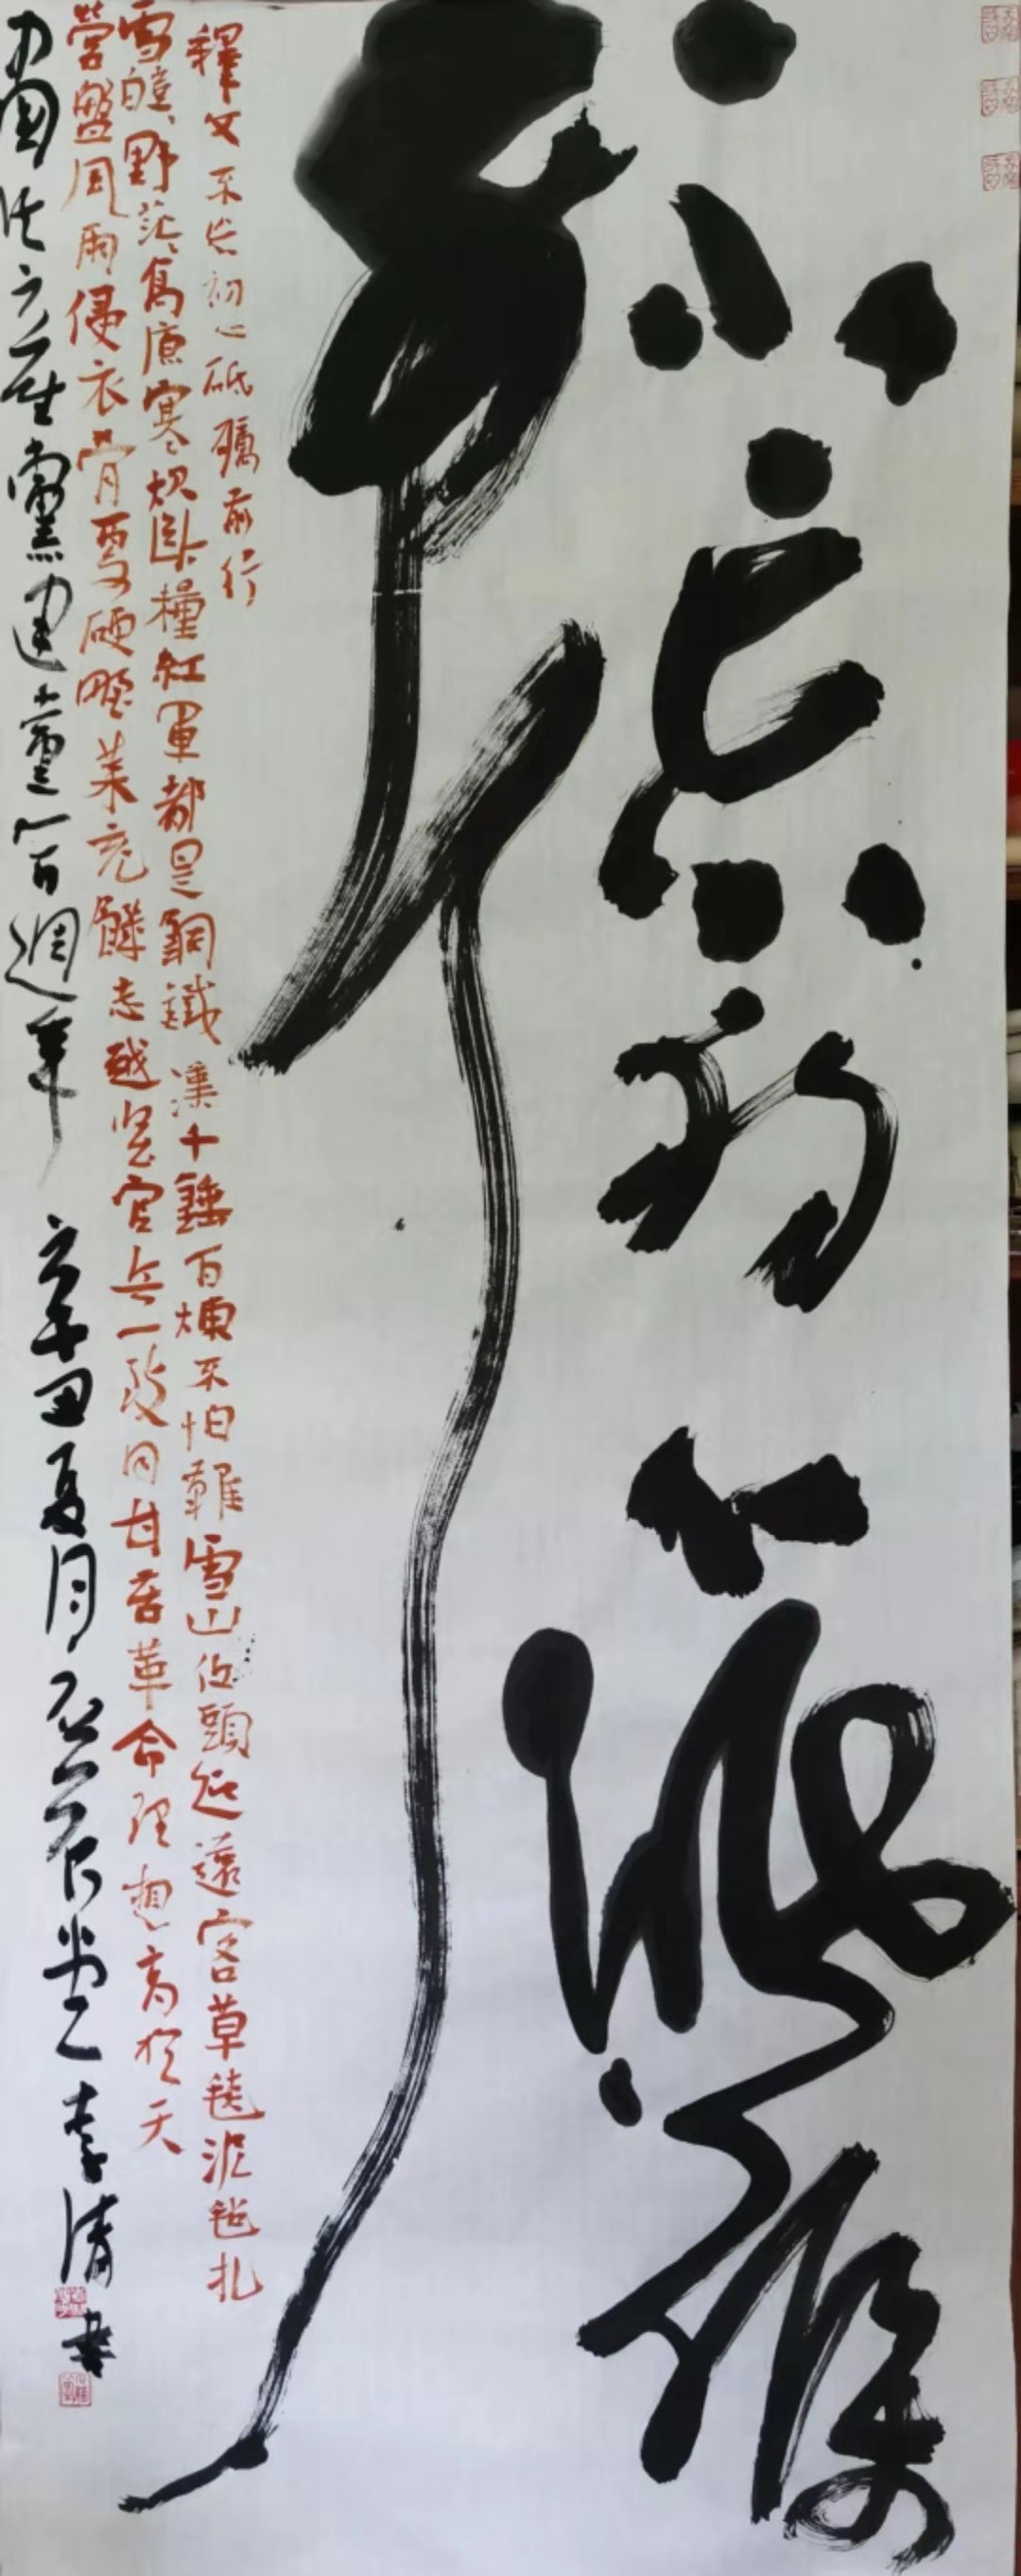 不忘初心砥礪
前行
釋文不忘初心砥礪前行
雪皚皚野茫茫高原寒炊斷糧紅軍都是鋼鐵漢千錘百煉不怕難雪山低頭迎遠客草毯泥氈扎
營盤風雨侵衣骨更硬野菜充饑志越堅官兵一致同甘苦革命理想高於天
中國共產黨建黨一百週年 辛丑夏月 李清書